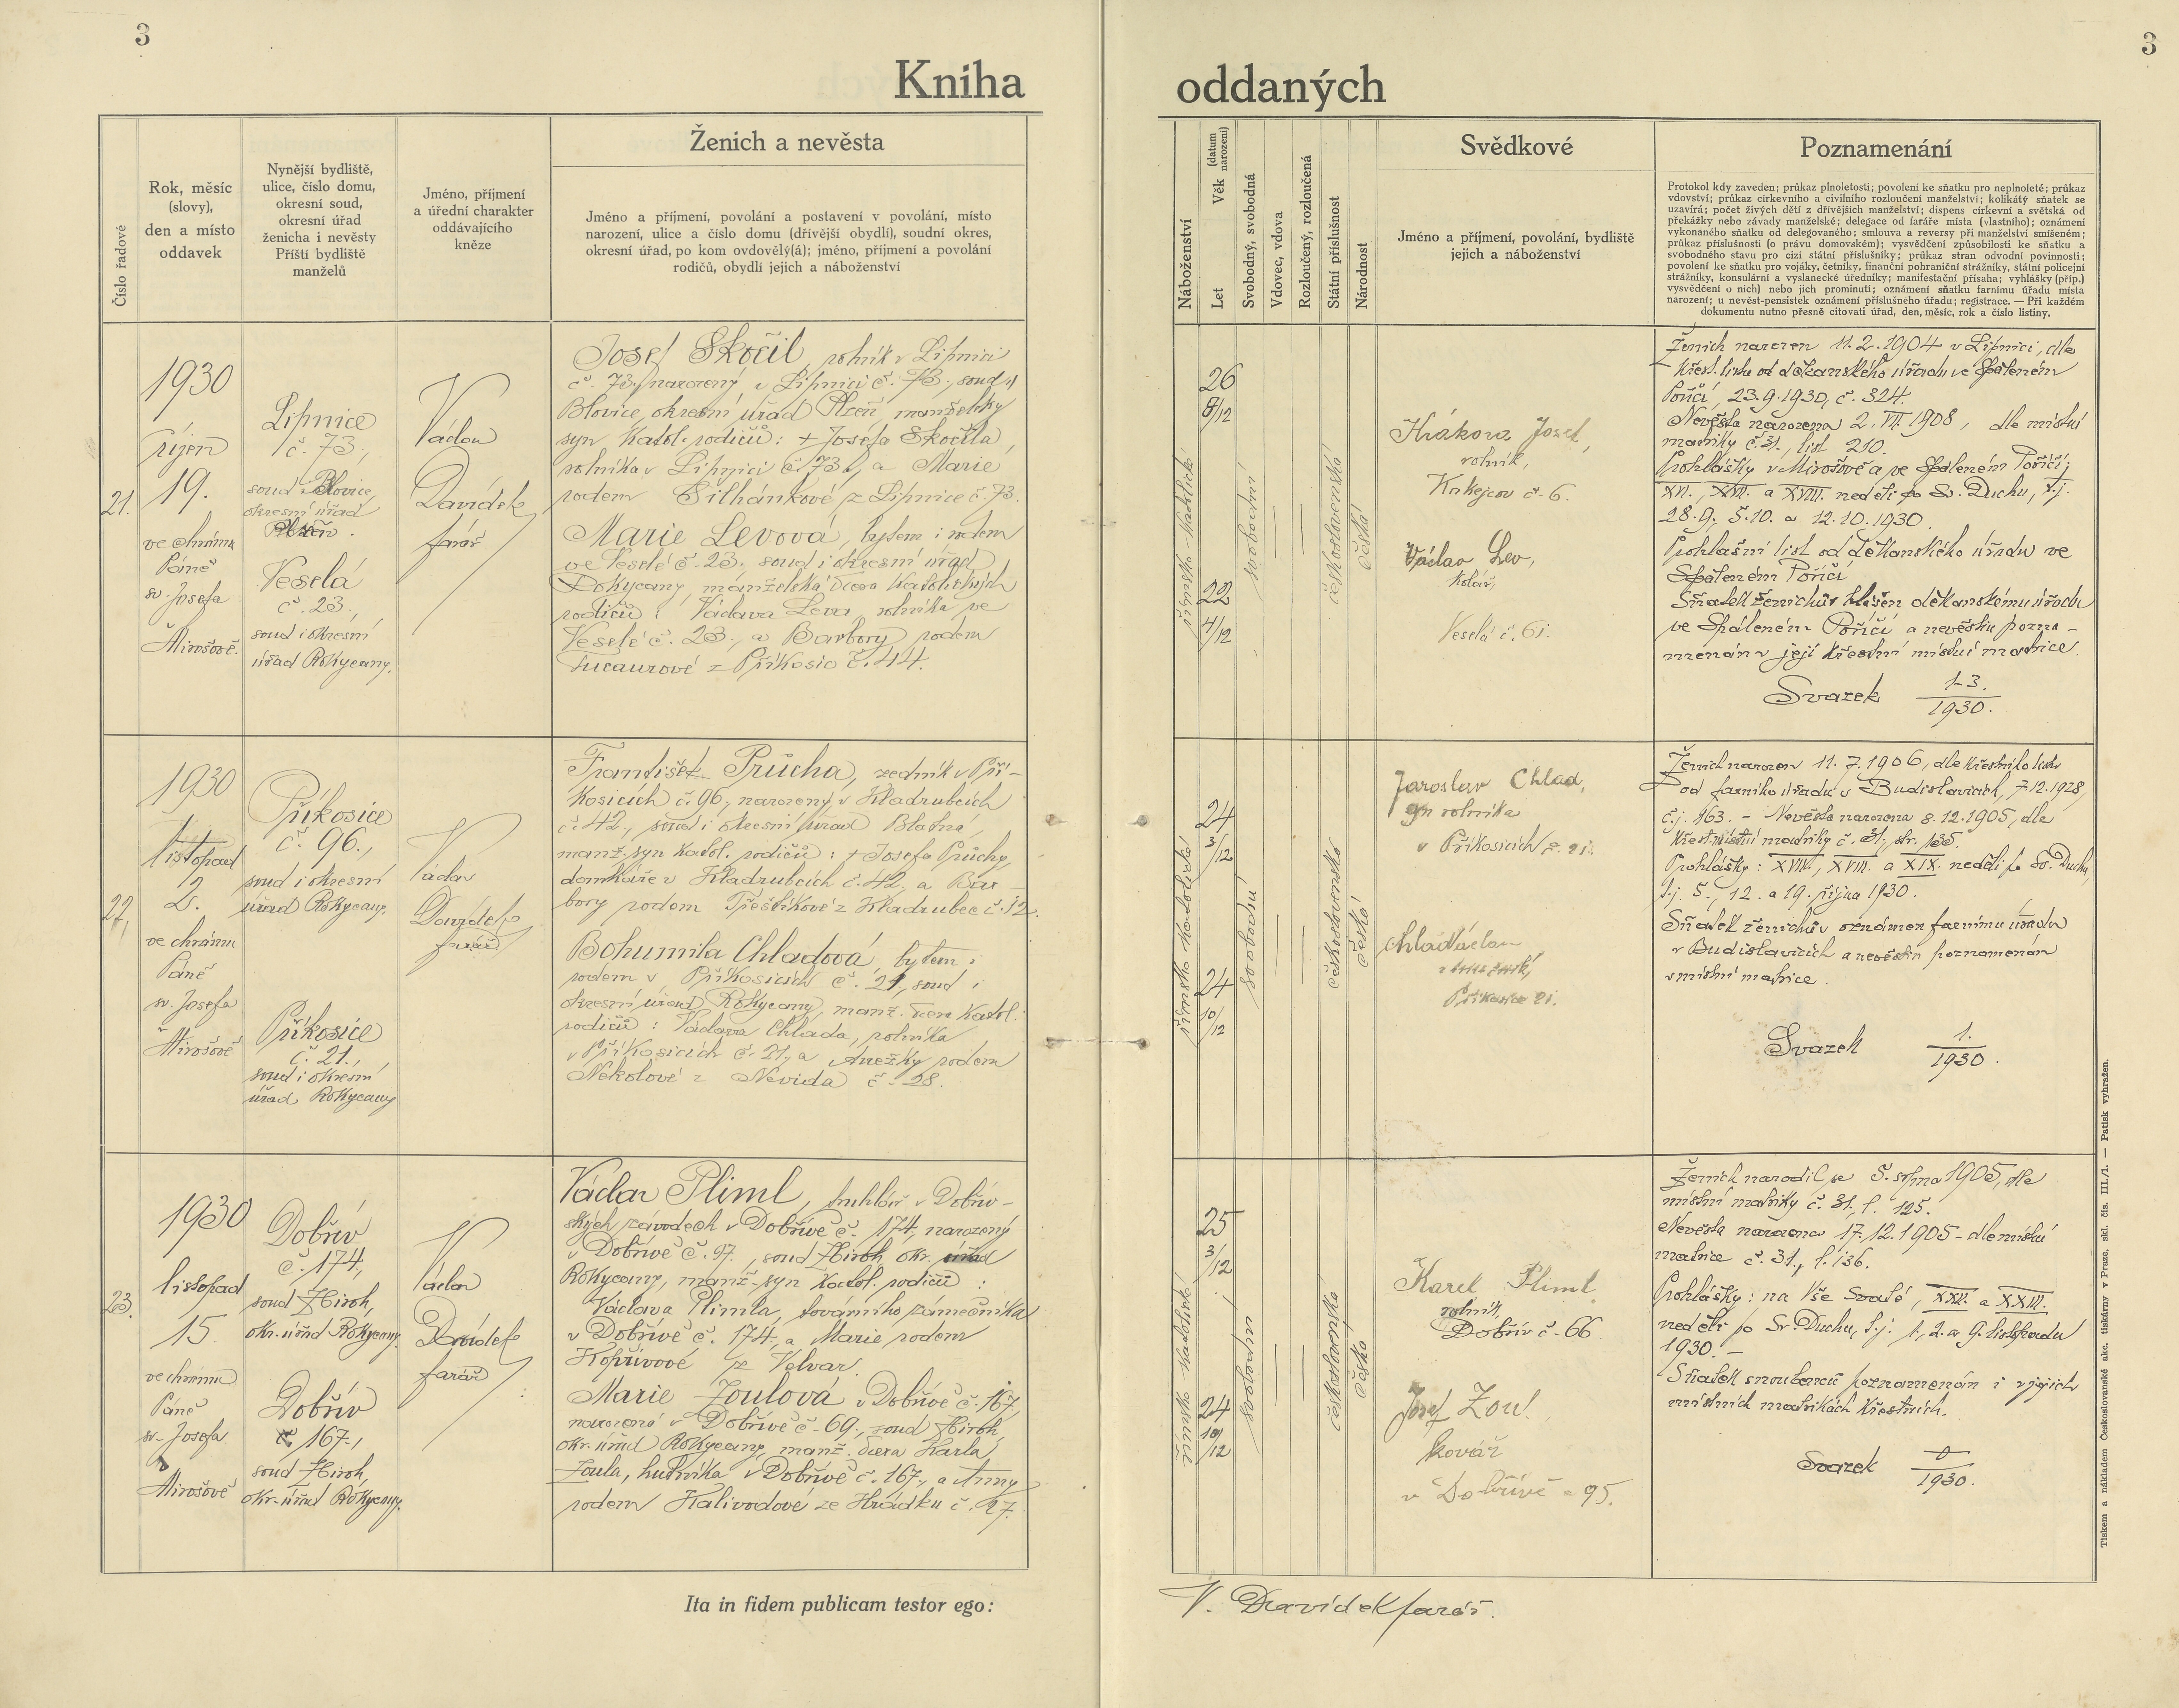 3
3
Kniha
oddaných
Číslo řadové
Rok, měsíc
(slovy),
den a místo
oddavek
Nynější bydliště,
ulice, číslo domu,
okresní soud,
okresní úřad
ženicha i nevěsty
Příští bydliště
manželů
Jméno, příjmení
a úřední charakter
oddávajícího
kněze
Ženich a nevěsta
Jméno a příjmení, povolání a postavení v povolání, místo
narození, ulice a číslo domu (dřívější obydlí), soudní okres,
okresní úřad, po kom ovdovělý(á); jméno, příjmení a povolání
rodičů, obydlí jejich a náboženství
Náboženství
Let Věk (datum narození)
Svobodný, svobodná
Vdovec, vdova
Rozloučený, rozloučená
Státní příslušnost
Národnost
Svědkové
Jméno a příjmení, povolání, bydliště
jejich a náboženství
Poznamenání
Protokol kdy zaveden; průkaz plnoletosti; povolení ke sňatku pro neplnoleté; průkaz
vdovství; průkaz církevního a civilního rozloučení manželství; kolikátý sňatek se
uzavírá; počet živých dětí z dřívějších manželství; dispens církevní a světská od
překážky nebo závady manželské; delegace od faráře místa (vlastního); oznámení
vykonaného sňatku od delegovaného; smlouva a reversy při manželství smíšeném;
průkaz příslušnosti (o právu domovském); vysvědčení způsobilosti ke sňatku a
svobodného stavu pro cizí státní příslušníky; průkaz stran odvodní povinnosti;
povolení ke sňatku pro vojáky, četníky, finanční pohraniční strážníky, státní policejní
strážníky, konsulární a vyslanecké úředníky; manifestační přísaha; vyhlášky (příp.)
vysvědčení o nich) nebo jich prominutí; oznámení sňatku farnímu úřadu místa
narození; u nevěst-pensistek oznámení příslušného úřadu; registrace. — Při každém
dokumentu nutno přesně citovati úřad, den, měsíc, rok a číslo listiny.
21.
1930
říjen
19.
ve chrámu
Páně
sv. Josefa
Mirošově.
Lipnice
č. 73,
soud Blovice,
okresní úřad
Plzeň.
Veselá
č. 23.,
soud i okresní
úřad Rokycany.
Václav
Davídek
farář
Josef Skočil, rolník v Lipnici
č. 73, narozený v Lipnici č. 73., soud
Blovice, okresní úřad Plzeň, manželský
syn katol. rodičů: + Josefa Skočila,
rolníka v Lipnici č. 73, a Marie
rodem Šilhánkové z Lipnice č. 73.
Marie Levová, bytem i rodem
ve Veselé č. 23., soud i okresní úřad
Rokycany, manželská dcera katolických
rodičů: Václava Leva, rolníka ve
Veselé č. 23., a Barbory rodem
z Příkosic č. 44.
římsko-katolické
26
8/12
22
4/12
svobodní
československá
česká
Hrákora Josef,
rolník,
Kakejcov č. 6.
Václav Lev,
kolář,
Veselá č. 61.
Ženich narozen 11.2.1904 v Lipnici, dle
křest. listu od děkanského úřadu ve Spáleném
Poříčí, 23.9.1930, č. 324.
Nevěsta narozena 2. VII. 1908, dle místní
matriky č. 31, list 210.
Prohlášky v Mirošově a ve Spáleném Poříčí;
XVI., XVII. a XVIII. neděli po Sv. Duchu, t.j.
28.9., 5.10. a 12.10.1930.
Prohlašní list od děkanského úřadu ve
Spáleném Poříčí
Sňatek ženichův hlášen děkanskému úřadu
ve Spáleném Poříčí a nevěstin pozna-
menán v její křestní místní matrice.
Svazek 13./1930.
22,
1930
listopad
2.
ve chrámu
Páně
sv. Josefa
Mirošově
Příkosice
č. 96.,
soud i okresní
úřad Rokycany.
Příkosice
č. 21.,
soud i okresní
úřad Rokycany
Václav
Davídek
farář
František Průcha, zedník v Pří-
kosicích č. 96., narozený v Kladrubcích
č. 42., soud i okresní úřad Blatná,
manž. syn katol. rodičů: + Josefa Průchy,
domkáře v Kladrubcích č. 42, a Bar
bory rodem Třeštíkové z Kladrubec č. 12.
Bohumila Chladová, bytem i
rodem v Příkosicích č. 21, soud i
okresní úřad Rokycany, manž. dcera katol.
rodičů: Václava Chlada, rolníka
v Příkosicích č. 21., a Anežky rodem
Nekolové z Nevida č. 28.
římsko katolické
24
3/12
24
10/12
svobodní
československá
česká
Jaroslav Chlad,
syn rolníka
v Příkosicích č. 21.
Chlad Václav
Příkosice 21.
Ženich narozen 11.7.1906, dle křestního listu
od farního úřadu v Budislavicích, 7.12.1928,
č.j. 163. - Nevěsta narozena 8.12.1905, dle
křest. místní matriky č. 31., str. 135.
Prohlášky: XVII., XVIII. a XIX. neděli po Sv. Duchu,
t.j. 5., 12. a 19. října 1930.
Sňatek ženichův oznámen farnímu úřadu
v Budislavicích a nevěstin poznamenán
v místní matrice.
Svazek 1./1930.
23.
1930
listopad
15.
ve chrámu
Páně
sv. Josefa
v
Mirošově
Dobřív
č. 174.,
soud Zbiroh,
okr. úřad Rokycany.
Dobřív
č. 167.,
soud Zbiroh,
okr. úřad Rokycany.
Václav
Davídek
farář
Václav Pliml, truhlář v Dobřív-
ských závodech v Dobřívě č. 174, narozený
v Dobřívě č. 97., soud Zbiroh, okr. úřad
Rokycany, manž. syn katol. rodičů:
Václava Plimla, továrního zámečníka
v Dobřívě č. 174, a Marie rodem
Kopřivové z Velvar.
Marie Zoulová v Dobřívě č. 167,
narozená v Dobřívě č. 69., soud Zbiroh,
okr. úřad Rokycany, manž. dcera Karla
Zoula, hutníka v Dobřívě č. 167., a Anny
rodem Kalivodové ze Hrádku č. 27.
římsko katolické
25
3/12
24
10/12
svobodní
československá
česká
Karel Pliml
rolník,
Dobřív č. 66.
Josef Zoul,
kovář
v Dobřívě č 95.
Ženich narodil se 5. srpna 1905, dle
místní matriky č. 31., l. 125.
Nevěsta narozena 17.12.1905 - dle místní
matrice č. 31., l. 136.
Prohlášky: na Vše Svaté, XXI. a XXII.
neděli po Sv. Duchu, t.j. 1., 2. a 9. listopadu
1930. -
Sňatek snoubenců poznamenán i v jejich
místních matrikách křestních.
Svazek 0/1930.
Ita in fidem publicam testor ego:
V. Davídek farář.
Tiskem a nákladem Československé akc. tiskárny v Praze, skl. čís. III./1. — Patisk vyhražen.